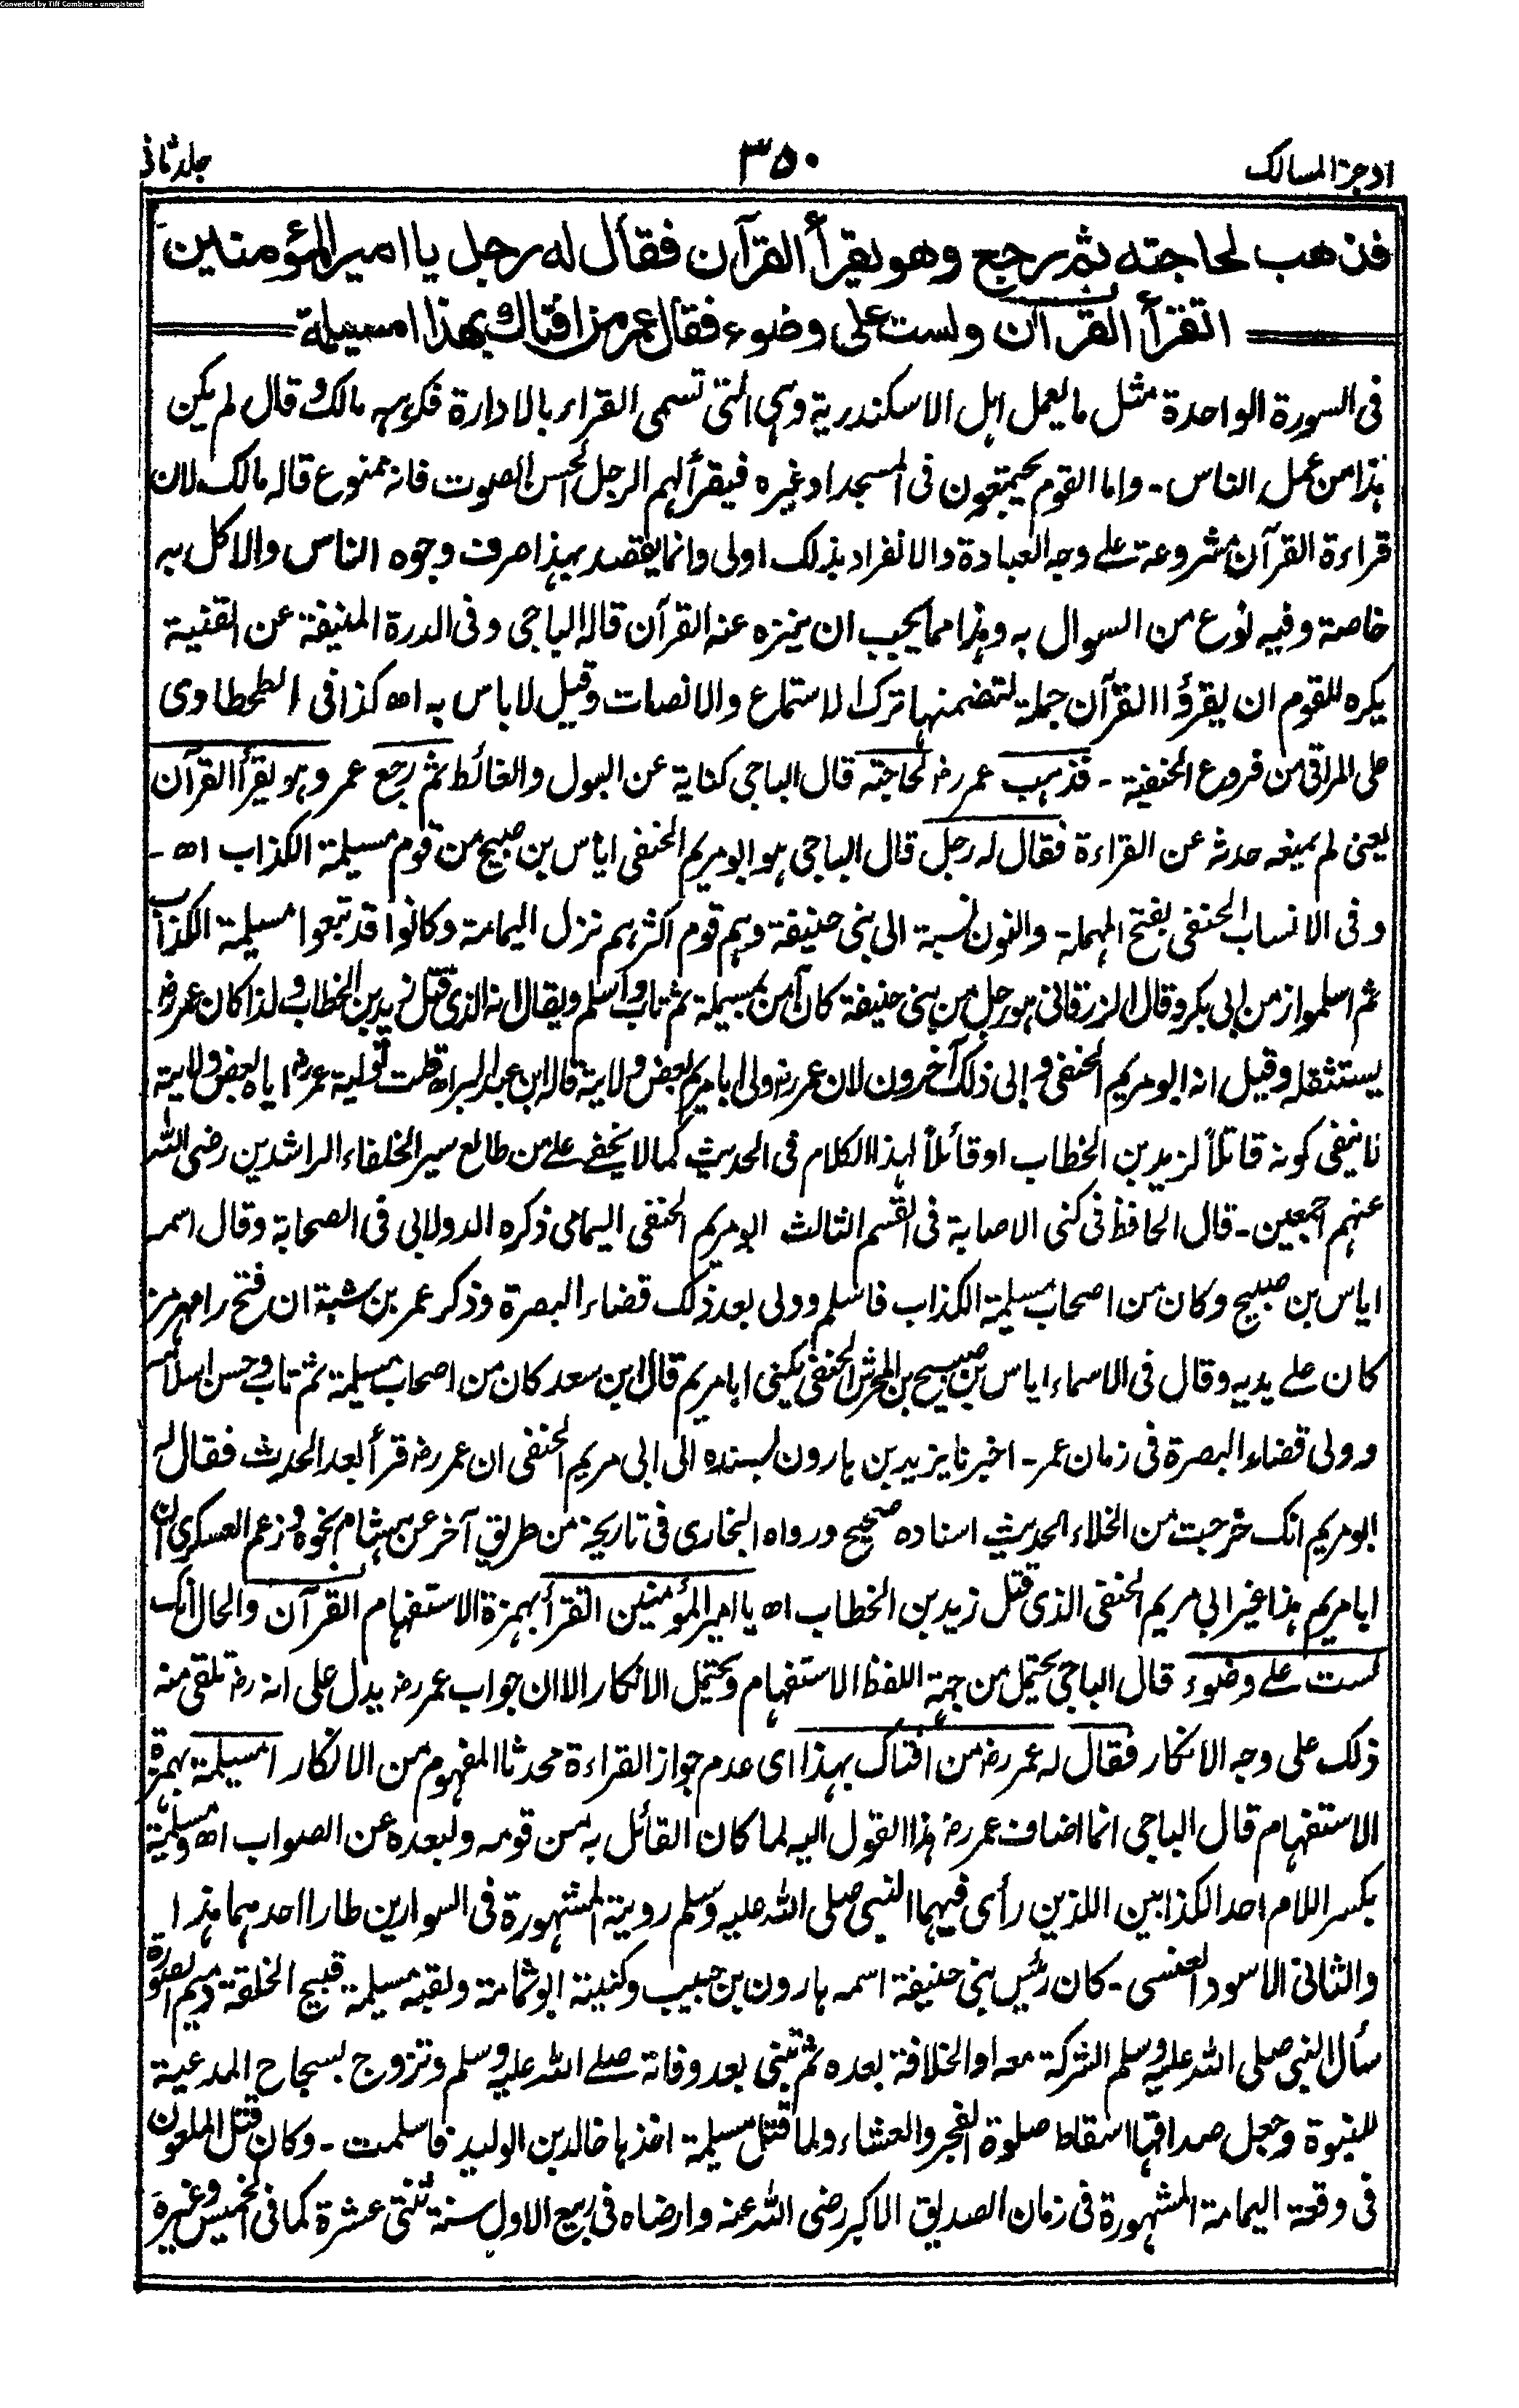 Converted by Tiff Combine - unregistered
اوجز المسالک
٣٥٠
جلد ثانی
فذهب لحاجته ثم رجع وهو يقرأ القرآن فقال له رجل يا امير المؤمنين
اتقرأ القرآن ولست على وضوء فقال عمر من افتاك بهذا امسيلمة
فى السورة الواحدة مثل ما يعمل اہل الاسكندرية وہى التى تسمى القراء بالادارة فكرہہ مالك وقال لم يكن
ہذا من عمل الناس - واما القوم يجتمعون فى المسجد او غيرہ فيقرأ لہم الرجل الحسن الصوت فانہ ممنوع قالہ مالك لان
قراءة القرآن مشروعة على وجہ العبادة والانفراد بذلك اولى وانما يقصد بہذا صرف وجوہ الناس والاكل بہ
خاصة وفيہ نوع من السوال بہ وہذا مما يجب ان ينزہ عنہ القرآن قالہ الباجى وفى الدرة المنيفة عن القنية
يكرہ للقوم ان يقرؤا القرآن جملة لتضمنہا ترك الاستماع والانصات وقيل لاباس بہ اھ كذا فى الطحطاوى
على المراقى من فروع الحنفية - فذہب عمر رض لحاجتہ قال الباجى كناية عن البول والغائط ثم رجع عمر وہو يقرأ القرآن
يعنى لم يمنعہ حدثہ عن القراءة فقال لہ رجل قال الباجى ہو ابو مريم الحنفى اياس بن صبيح من قوم مسيلمة الكذاب اھ -
وفى الانساب الحنفى بفتح المہملة والنون نسبة الى بنى حنيفة وہم قوم اكثرہم نزل اليمامة وكانوا قد تبعوا مسيلمة الكذاب
ثم اسلموا زمن ابى بكر وقال الزرقانى ہو رجل من بنى حنيفة كان آمن بمسيلمة ثم تاب واسلم ويقال انہ الذى قتل زيد بن الخطاب ولذا كان عمر رض
يستثقلہ وقيل انہ ابو مريم الحنفى وابى ذلك آخرون لان عمر رض ولى ابا مريم بعض ولايتہ قالہ ابن عبد البر اھ قلت تولية عمر رض اياہ بعض ولايتہ
نا ينفى كونہ قاتلاً لزيد بن الخطاب او قائلاً لہذا الكلام فى الحديث كما لا يخفى على من طالع سير الخلفاء الراشدين رضى اللہ
عنہم اجمعين - قال الحافظ فى كنى الاصابة فى القسم الثالث ابو مريم الحنفى اليمامى ذكرہ الدولابى فى الصحابة وقال اسمہ
اياس بن صبيح وكان من اصحاب مسيلمة الكذاب فاسلم وولى بعد ذلك قضاء البصرة وذكر عمر بن شبة ان فتح رامہرمز
كان على يديہ وقال فى الاسماء اياس بن صبيح بن المحرش الحنفى يكنى ابا مريم قال ابن سعد كان من اصحاب مسيلمة ثم تاب وحسن اسلامہ
وولى قضاء البصرة فى زمان عمر - اخبرنا يزيد بن ہارون بسندہ الى ابى مريم الحنفى ان عمر رض قرأ بعد الحدث فقال لہ
ابو مريم انك خرجت من الخلاء الحديث اسنادہ صحيح ورواہ البخارى فى تاريخہ من طريق آخر عن ہشام نحوہ وزعم العسكرى ان
ابا مريم ہذا غير ابى مريم الحنفى الذى قتل زيد بن الخطاب اھ يا امير المؤمنين اتقرأ بہمزة الاستفہام القرآن والحال انك
لست على وضوء قال الباجى يحتمل من جہة اللفظ الاستفہام ويحتمل الانكار الا ان جواب عمر رض يدل على انہ رض تلقى منہ
ذلك على وجہ الانكار فقال لہ عمر رض من افتاك بہذا اى عدم جواز القراءة محدثا المفہوم من الانكار امسيلمة بہمزة
الاستفہام قال الباجى انما اضاف عمر رض ہذا القول اليہ لما كان القائل بہ من قومہ ولبعدہ عن الصواب اھ ومسيلمة
بكسر اللام احد الكذابين اللذين رأى فيہما النبى صلى اللہ عليہ وسلم رويتہ المشہورة فى السوارين طارا احدہما ہذا
والثانى الاسود العنسى - كان رئيس بنى حنيفة اسمہ ہارون بن حبيب وكنيتہ ابو ثمامة ولقبہ مسيلمة قبيح الخلقة دميم الصورة
سأل النبى صلى اللہ عليہ وسلم الشركة معہ او الخلافة بعدہ ثم تنبى بعد وفاتہ صلى اللہ عليہ وسلم وتزوج بسجاح المدعية
للنبوة وجعل صداقہا اسقاط صلوة الفجر والعشاء ولما قتل مسيلمة اخذہا خالد بن الوليد فاسلمت - وكان قتل الملعون
فى وقعة اليمامة المشہورة فى زمان الصديق الاكبر رضى اللہ عنہ وارضاہ فى ربيع الاول سنة ثنتى عشرة كما فى الخميس وغيرہ